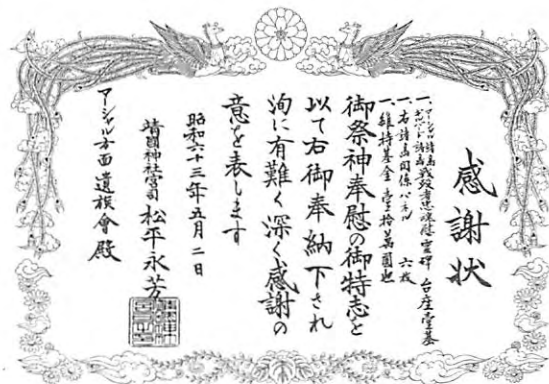 感謝状
一、マーシャル諸島ギルバート諸島戦歿者忠魂慰霊碑 台座壹基
一、右諸島関係パネル 六枚
一、維持基金 壹百拾萬圓也
御祭神奉慰の御特志と
以て右御奉納下され
洵に有難く深く感謝の
意を表します
昭和六十三年五月二日
靖國神社宮司 松平永芳
マーシャル方面遺族會殿